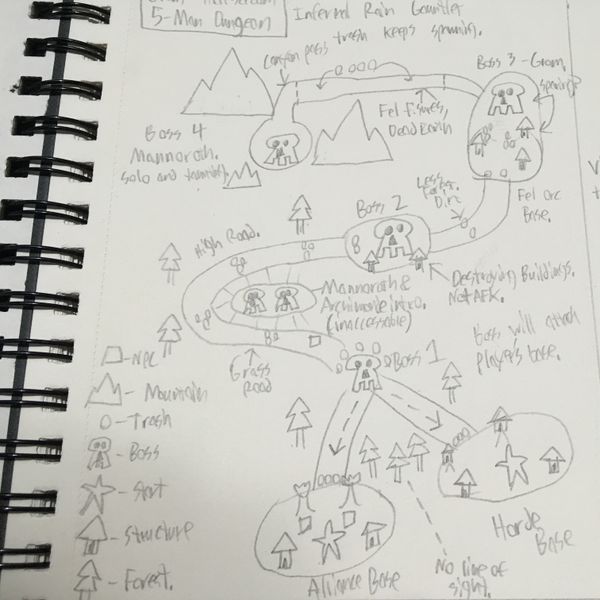 5-Man Dungeon
Infernal Rain Gauntlet
trash keeps spawning.
Canyon pass
Boss 3 - Grom,
sparring?
Fel fissures,
Dead Earth
Boss 4
Mannoroth.
solo and taunting
Less
Dirt
Fel orc
Base.
Boss 2
High Road.
Destroying Buildings.
Not AFK.
Mannoroth &
Archimonde intro.
(inaccessable)
Boss will attack
player's base.
Boss 1
Grass
Road
□ - NPC
- Mountain
O - Trash
- Boss
- Start
- Structure
- Forest.
Horde
Base
Alliance Base
No line of
sight.